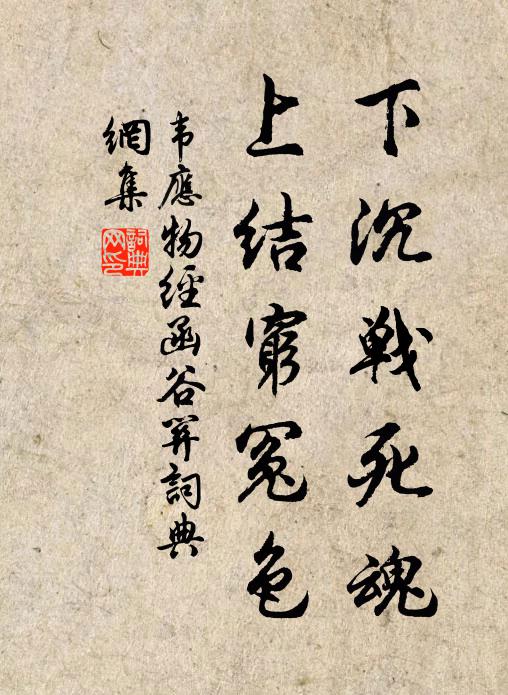 下沉戦死魂
上结窮冤色
韦應物經函谷関詞典
網集
詞典
网印